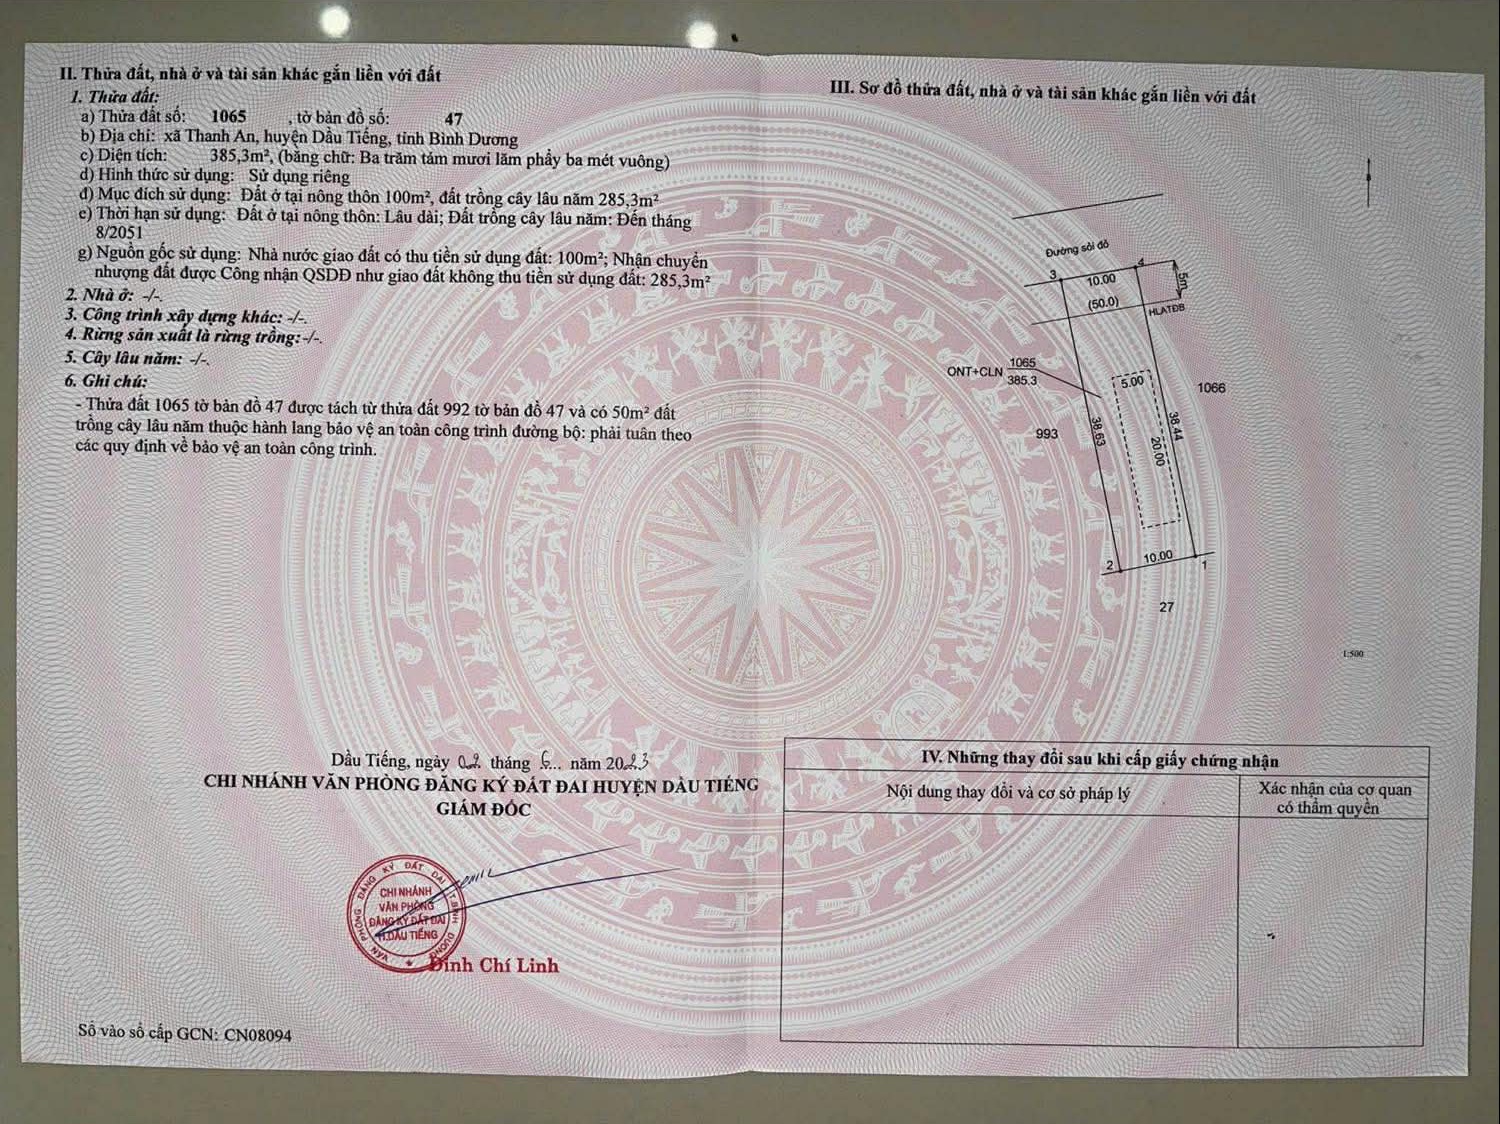 II. Thửa đất, nhà ở và tài sản khác gắn liền với đất
1. Thửa đất:
a) Thửa đất số: 1065 , tờ bản đồ số: 47
b) Địa chỉ: xã Thanh An, huyện Dầu Tiếng, tỉnh Bình Dương
c) Diện tích: 385,3m², (bằng chữ: Ba trăm tám mươi lăm phẩy ba mét vuông)
d) Hình thức sử dụng: Sử dụng riêng
đ) Mục đích sử dụng: Đất ở tại nông thôn 100m², đất trồng cây lâu năm 285,3m²
e) Thời hạn sử dụng: Đất ở tại nông thôn: Lâu dài; Đất trồng cây lâu năm: Đến tháng
8/2051
g) Nguồn gốc sử dụng: Nhà nước giao đất có thu tiền sử dụng đất: 100m²; Nhận chuyển
nhượng đất được Công nhận QSDĐ như giao đất không thu tiền sử dụng đất: 285,3m²
2. Nhà ở: -/-.
3. Công trình xây dựng khác: -/-.
4. Rừng sản xuất là rừng trồng:-/-.
5. Cây lâu năm: -/-.
6. Ghi chú:
- Thửa đất 1065 tờ bản đồ 47 được tách từ thửa đất 992 tờ bản đồ 47 và có 50m² đất
trồng cây lâu năm thuộc hành lang bảo vệ an toàn công trình đường bộ: phải tuân theo
các quy định về bảo vệ an toàn công trình.
Dầu Tiếng, ngày 02 tháng 6... năm 2023
CHI NHÁNH VĂN PHÒNG ĐĂNG KÝ ĐẤT ĐAI HUYỆN DẦU TIẾNG
GIÁM ĐỐC
VĂN PHÒNG ĐĂNG KÝ ĐẤT ĐAI T.BÌNH DƯƠNG
CHI NHÁNH
VĂN PHÒNG
ĐĂNG KÝ ĐẤT ĐAI
H.DẦU TIẾNG
Đinh Chí Linh
Số vào sổ cấp GCN: CN08094
III. Sơ đồ thửa đất, nhà ở và tài sản khác gắn liền với đất
Đường sỏi đỏ
3
4
10.00
5m
(50.0)
HLATĐB
ONT+CLN 1065
385.3
5.00
1066
38.63
38.44
993
20.00
10.00
2
1
27
1:500
IV. Những thay đổi sau khi cấp giấy chứng nhận
Nội dung thay đổi và cơ sở pháp lý
Xác nhận của cơ quan
có thẩm quyền